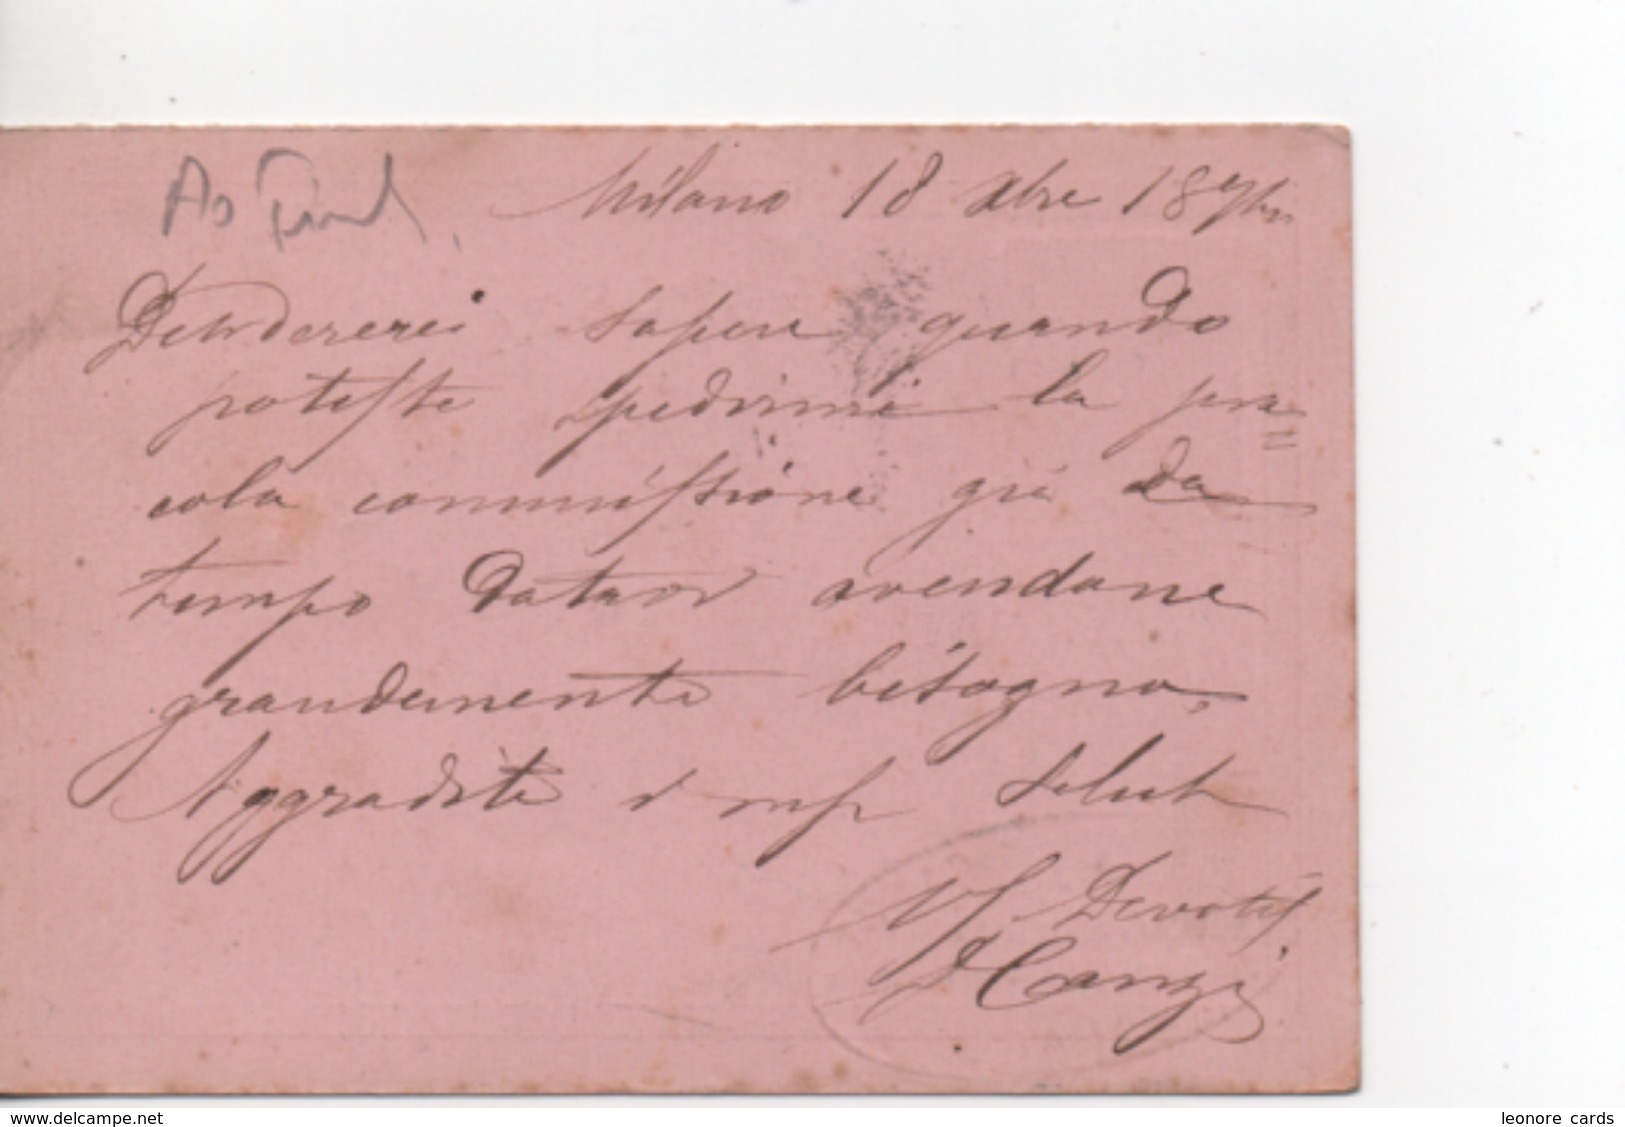 Milano 18 Xbre 187
Desidererei sapere quando
poteste spedirmi la pic=
cola commissione già da
tempo datavi avendone
grandemente bisogno,
Aggradite i mp salut
Devotis
Canzi
www.delcampe.net
leonore cards